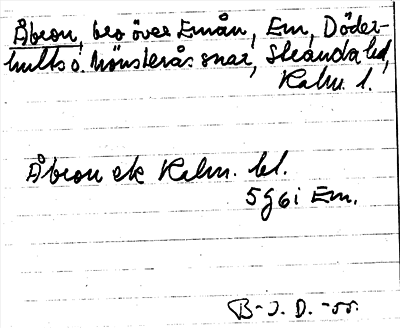 Åbron, bro över Emån, Em, Döder-
hults o. Mönsterås snar, Stranda hd,
Kalm. l.
Åbron ek Kalm. bl.
5 g 6 i Em.
B-J. D. -55.